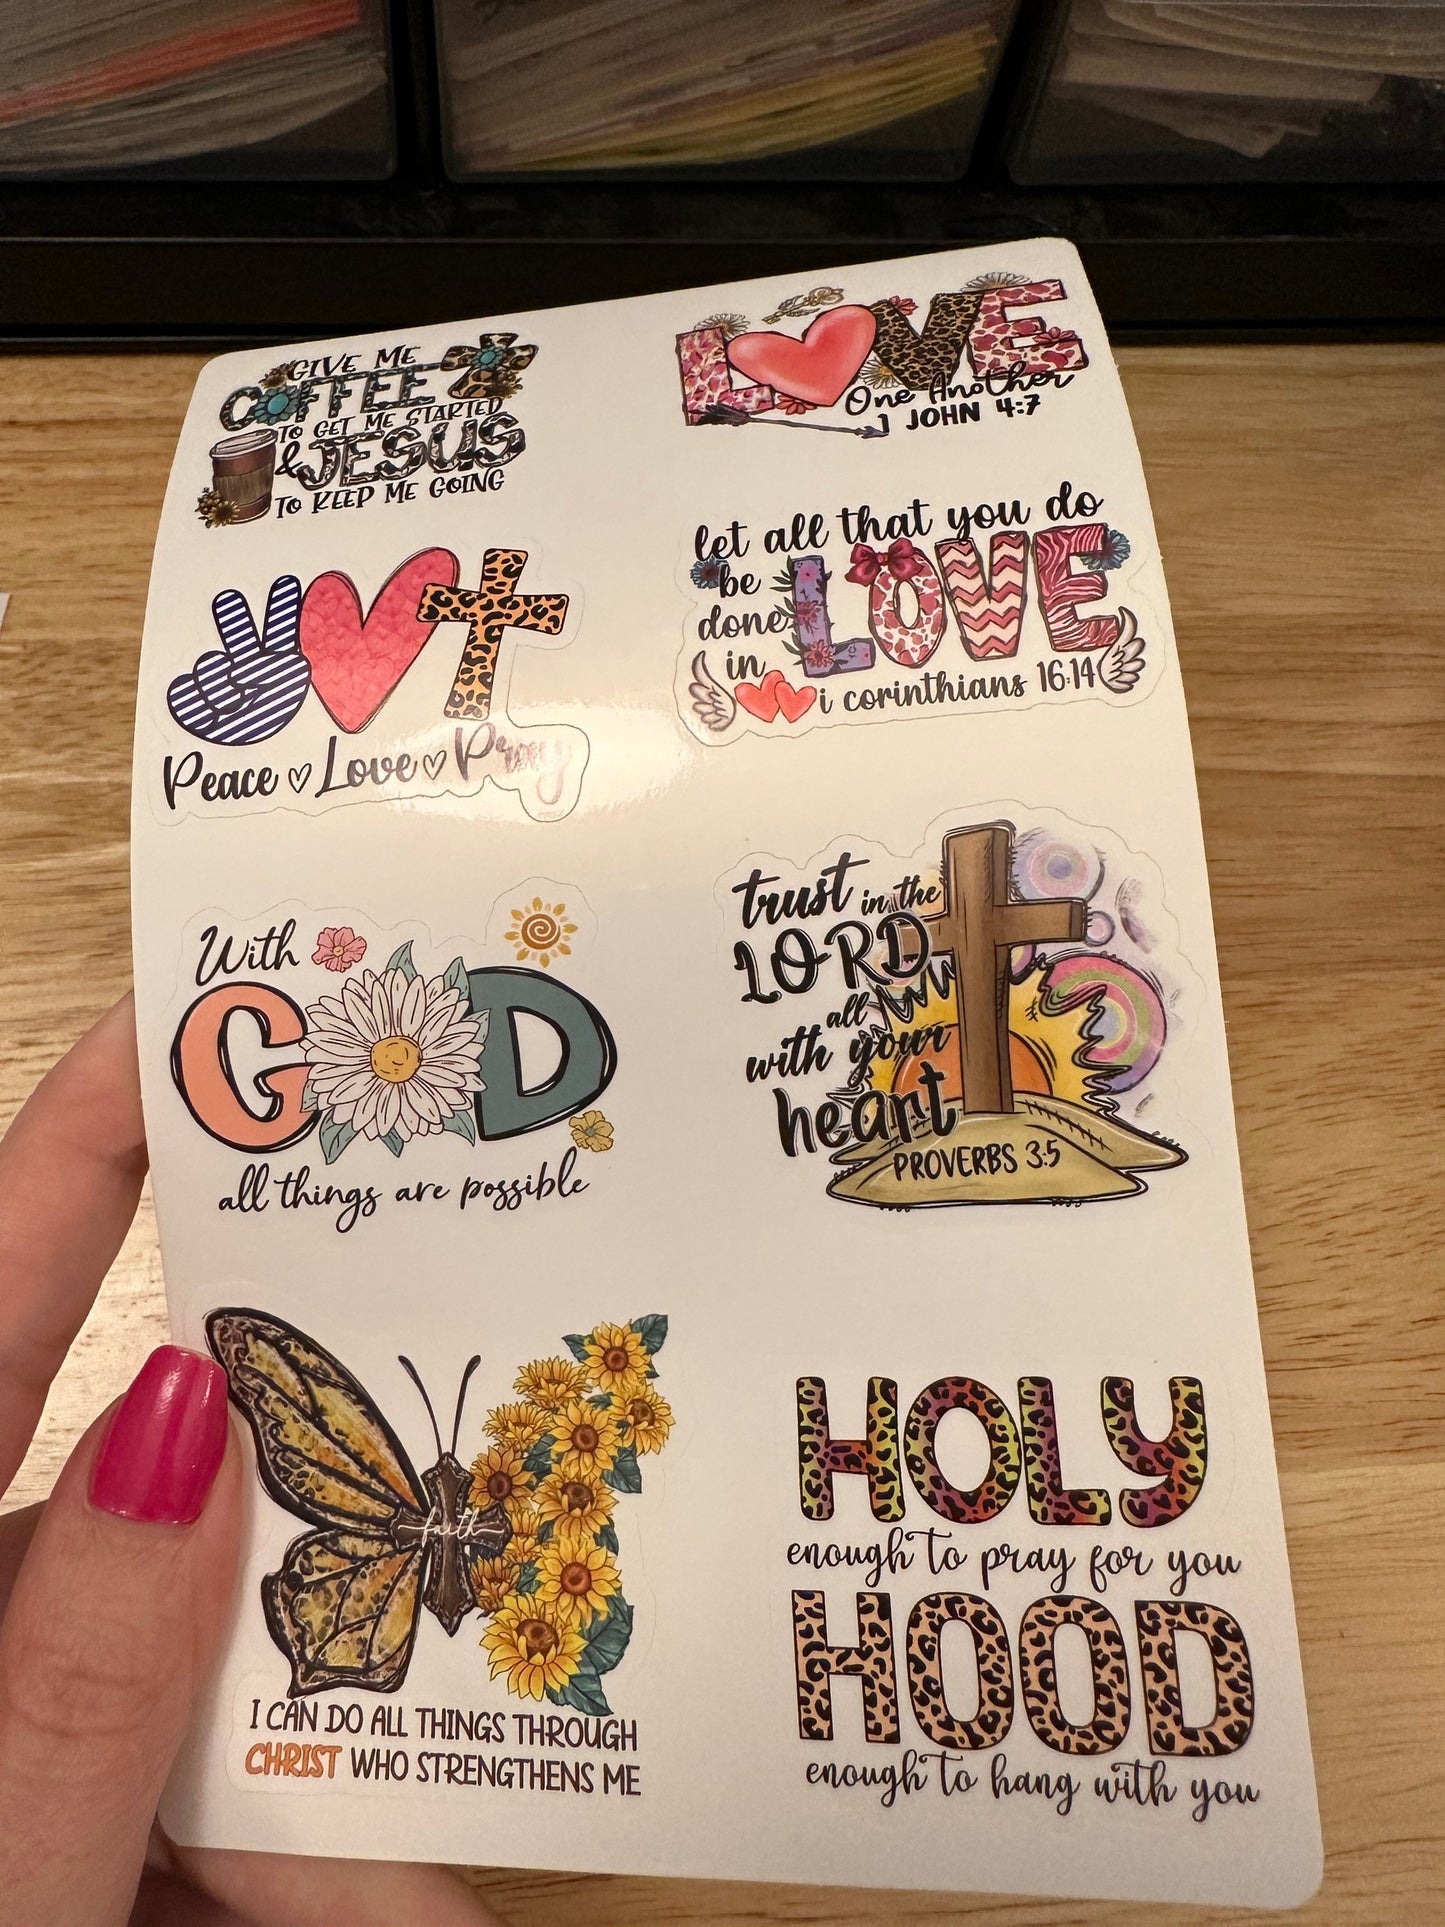 GIVE ME
COFFEE
TO GET ME STARTED
& JESUS
TO KEEP ME GOING
LOVE
One Another
1 JOHN 4:7
Peace Love Pray
let all that you do
be
done
in
LOVE
i corinthians 16:14
With
GOD
all things are possible
trust in the
LORD
all
with your
heart
PROVERBS 3:5
faith
I CAN DO ALL THINGS THROUGH
CHRIST WHO STRENGTHENS ME
HOLY
enough to pray for you
HOOD
enough to hang with you